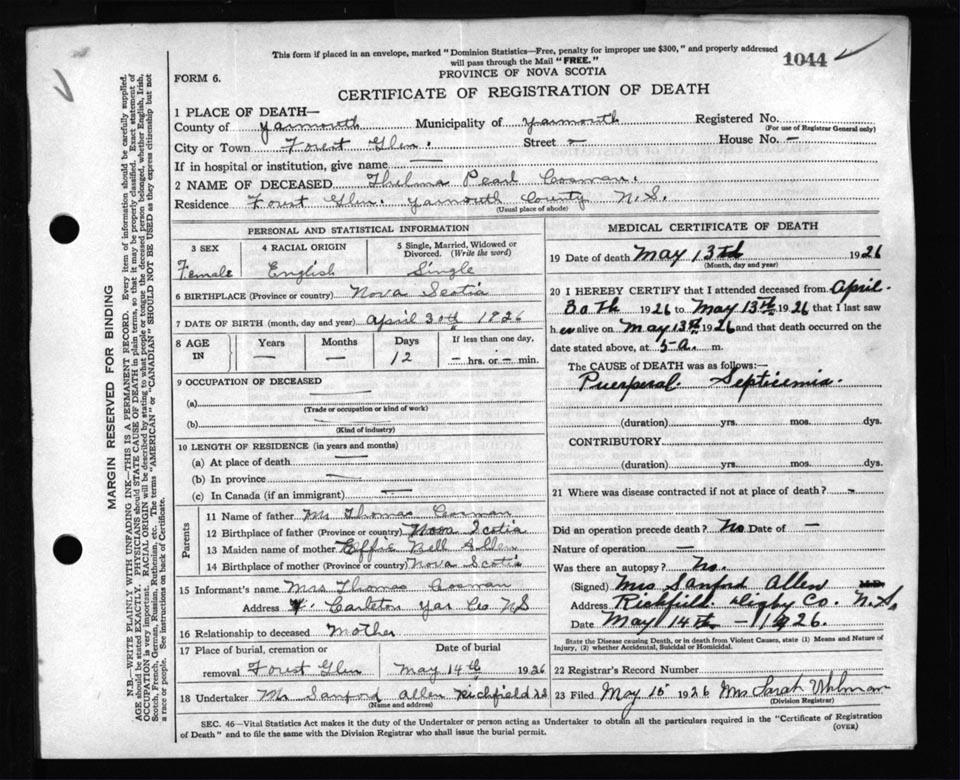 This form if placed in an envelope, marked "Dominion Statistics—Free, penalty for improper use $300," and properly addressed
will pass through the Mail "FREE."
1044
FORM 6.
PROVINCE OF NOVA SCOTIA
CERTIFICATE OF REGISTRATION OF DEATH
1 PLACE OF DEATH—
County of Yarmouth Municipality of Yarmouth Registered No.
(For use of Registrar General only)
City or Town Forest Glen. Street — House No. —
If in hospital or institution, give name —
2 NAME OF DECEASED Thelma Pearl Cosman.
Residence Forest Glen. Yarmouth County N.S.
(Usual place of abode)
PERSONAL AND STATISTICAL INFORMATION
3 SEX 4 RACIAL ORIGIN 5 Single, Married, Widowed or Divorced. (Write the word)
Female English Single
6 BIRTHPLACE (Province or country) Nova Scotia
7 DATE OF BIRTH (month, day and year) April 30th 1926
8 AGE IN Years Months Days If less than one day,
— — 12 — hrs. or — min.
9 OCCUPATION OF DECEASED
(a) —
(Trade or occupation or kind of work)
(b) —
(Kind of industry)
10 LENGTH OF RESIDENCE (in years and months)
(a) At place of death —
(b) In province —
(c) In Canada (if an immigrant) —
Parents
11 Name of father Mr Thomas Cosman
12 Birthplace of father (Province or country) Nova Scotia
13 Maiden name of mother Effie Nell Allen
14 Birthplace of mother (Province or country) Nova Scotia
15 Informant's name Mrs Thomas Cosman
Address Carleton Yar Co NS
16 Relationship to deceased Mother
17 Place of burial, cremation or Date of burial
removal Forest Glen May 14th 1926
18 Undertaker Mr Sanford Allen Richfield
(Name and address)
MEDICAL CERTIFICATE OF DEATH
19 Date of death May 13th 1926
(Month, day and year)
20 I HEREBY CERTIFY that I attended deceased from April
30th 1926 to May 13th 1926 that I last saw
h er alive on May 13th 1926 and that death occurred on the
date stated above, at 5 a. m.
The CAUSE of DEATH was as follows:—
Puerperal Septicemia.
(duration) yrs. mos. dys.
CONTRIBUTORY
(duration) yrs. mos. dys.
21 Where was disease contracted if not at place of death? —
Did an operation precede death? No Date of —
Nature of operation —
Was there an autopsy? No.
(Signed) Mrs Sanford Allen M.D.
Address Richfield Digby Co. N.S.
Date May 14th — 1926.
State the Disease causing Death, or in death from Violent Causes, state (1) Means and Nature of
Injury, (2) whether Accidental, Suicidal or Homicidal.
22 Registrar's Record Number
23 Filed May 15 1926 Mrs Sarah Uhlman
(Division Registrar)
SEC. 46—Vital Statistics Act makes it the duty of the Undertaker or person acting as Undertaker to obtain all the particulars required in the "Certificate of Registration
of Death" and to file the same with the Division Registrar who shall issue the burial permit.
(OVER)
MARGIN RESERVED FOR BINDING
N.B.—WRITE PLAINLY WITH UNFADING INK—THIS IS A PERMANENT RECORD. Every item of information should be carefully supplied.
AGE should be stated EXACTLY. PHYSICIANS should STATE CAUSE OF DEATH in plain terms, so that it may be properly classified. Exact statement of
OCCUPATION is very important. RACIAL ORIGIN will be described by stating to what people or tongue the deceased person belonged, whether English, Irish,
Scotch, French, German, Russian, Ruthenian, etc. The terms "AMERICAN" or "CANADIAN" SHOULD NOT BE USED as they express citizenship but not
a race or people. See instructions on back of Certificate.